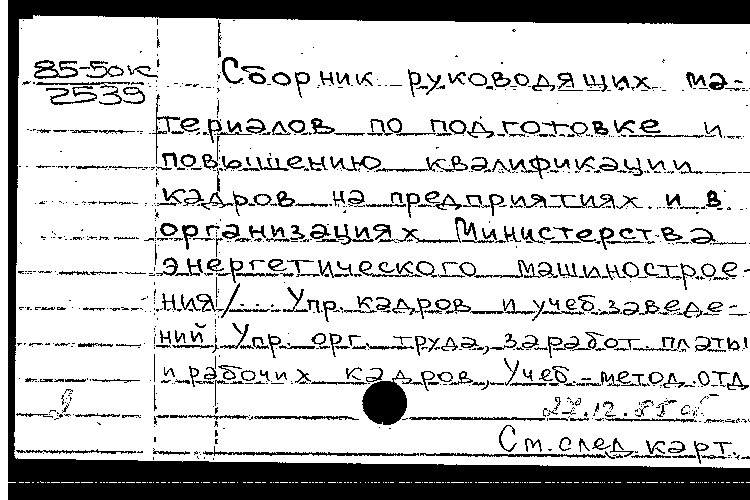 85-50к
2539
Сборник руководящих ма-
териалов по подготовке и
повышению квалификации
кадров на предприятиях и в
организациях Министерства
энергетического машинострое-
ния/... Упр. кадров и учеб. заведе-
ний, Упр. орг. труда, заработ. платы
и рабочих кадров, Учеб.-метод. отд
27.12.85
См. след. карт.